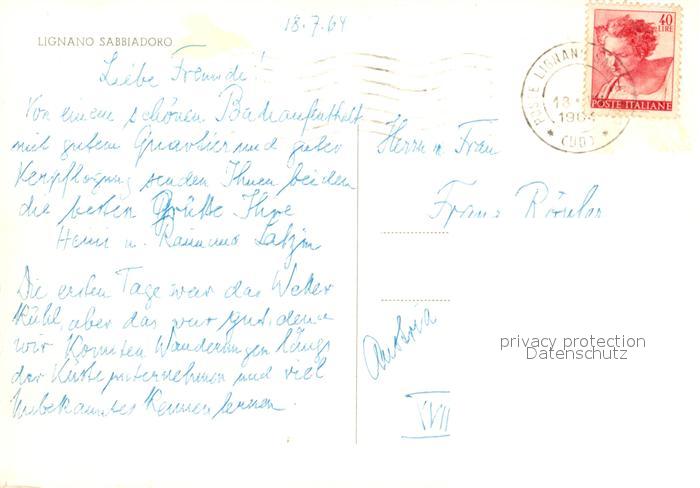 18.7.64
LIGNANO SABBIADORO
Liebe Freunde!
Von einem schönen Badeaufenthalt
mit gutem Quartier und guter
Verpflegung senden Ihnen beiden
die besten Grüße Ihre
Henni u.
Die ersten Tage war das Wetter
kühl, aber das war gut, denn
wir konnten Wanderungen längs
der Küste unternehmen und viel
Unbekanntes kennen lernen.
40
LIRE
POSTE ITALIANE
POSTE LIGNANO
18
1964
(UD)
Herrn u. Frau
Franz
Austria
XVII
privacy protection
Datenschutz